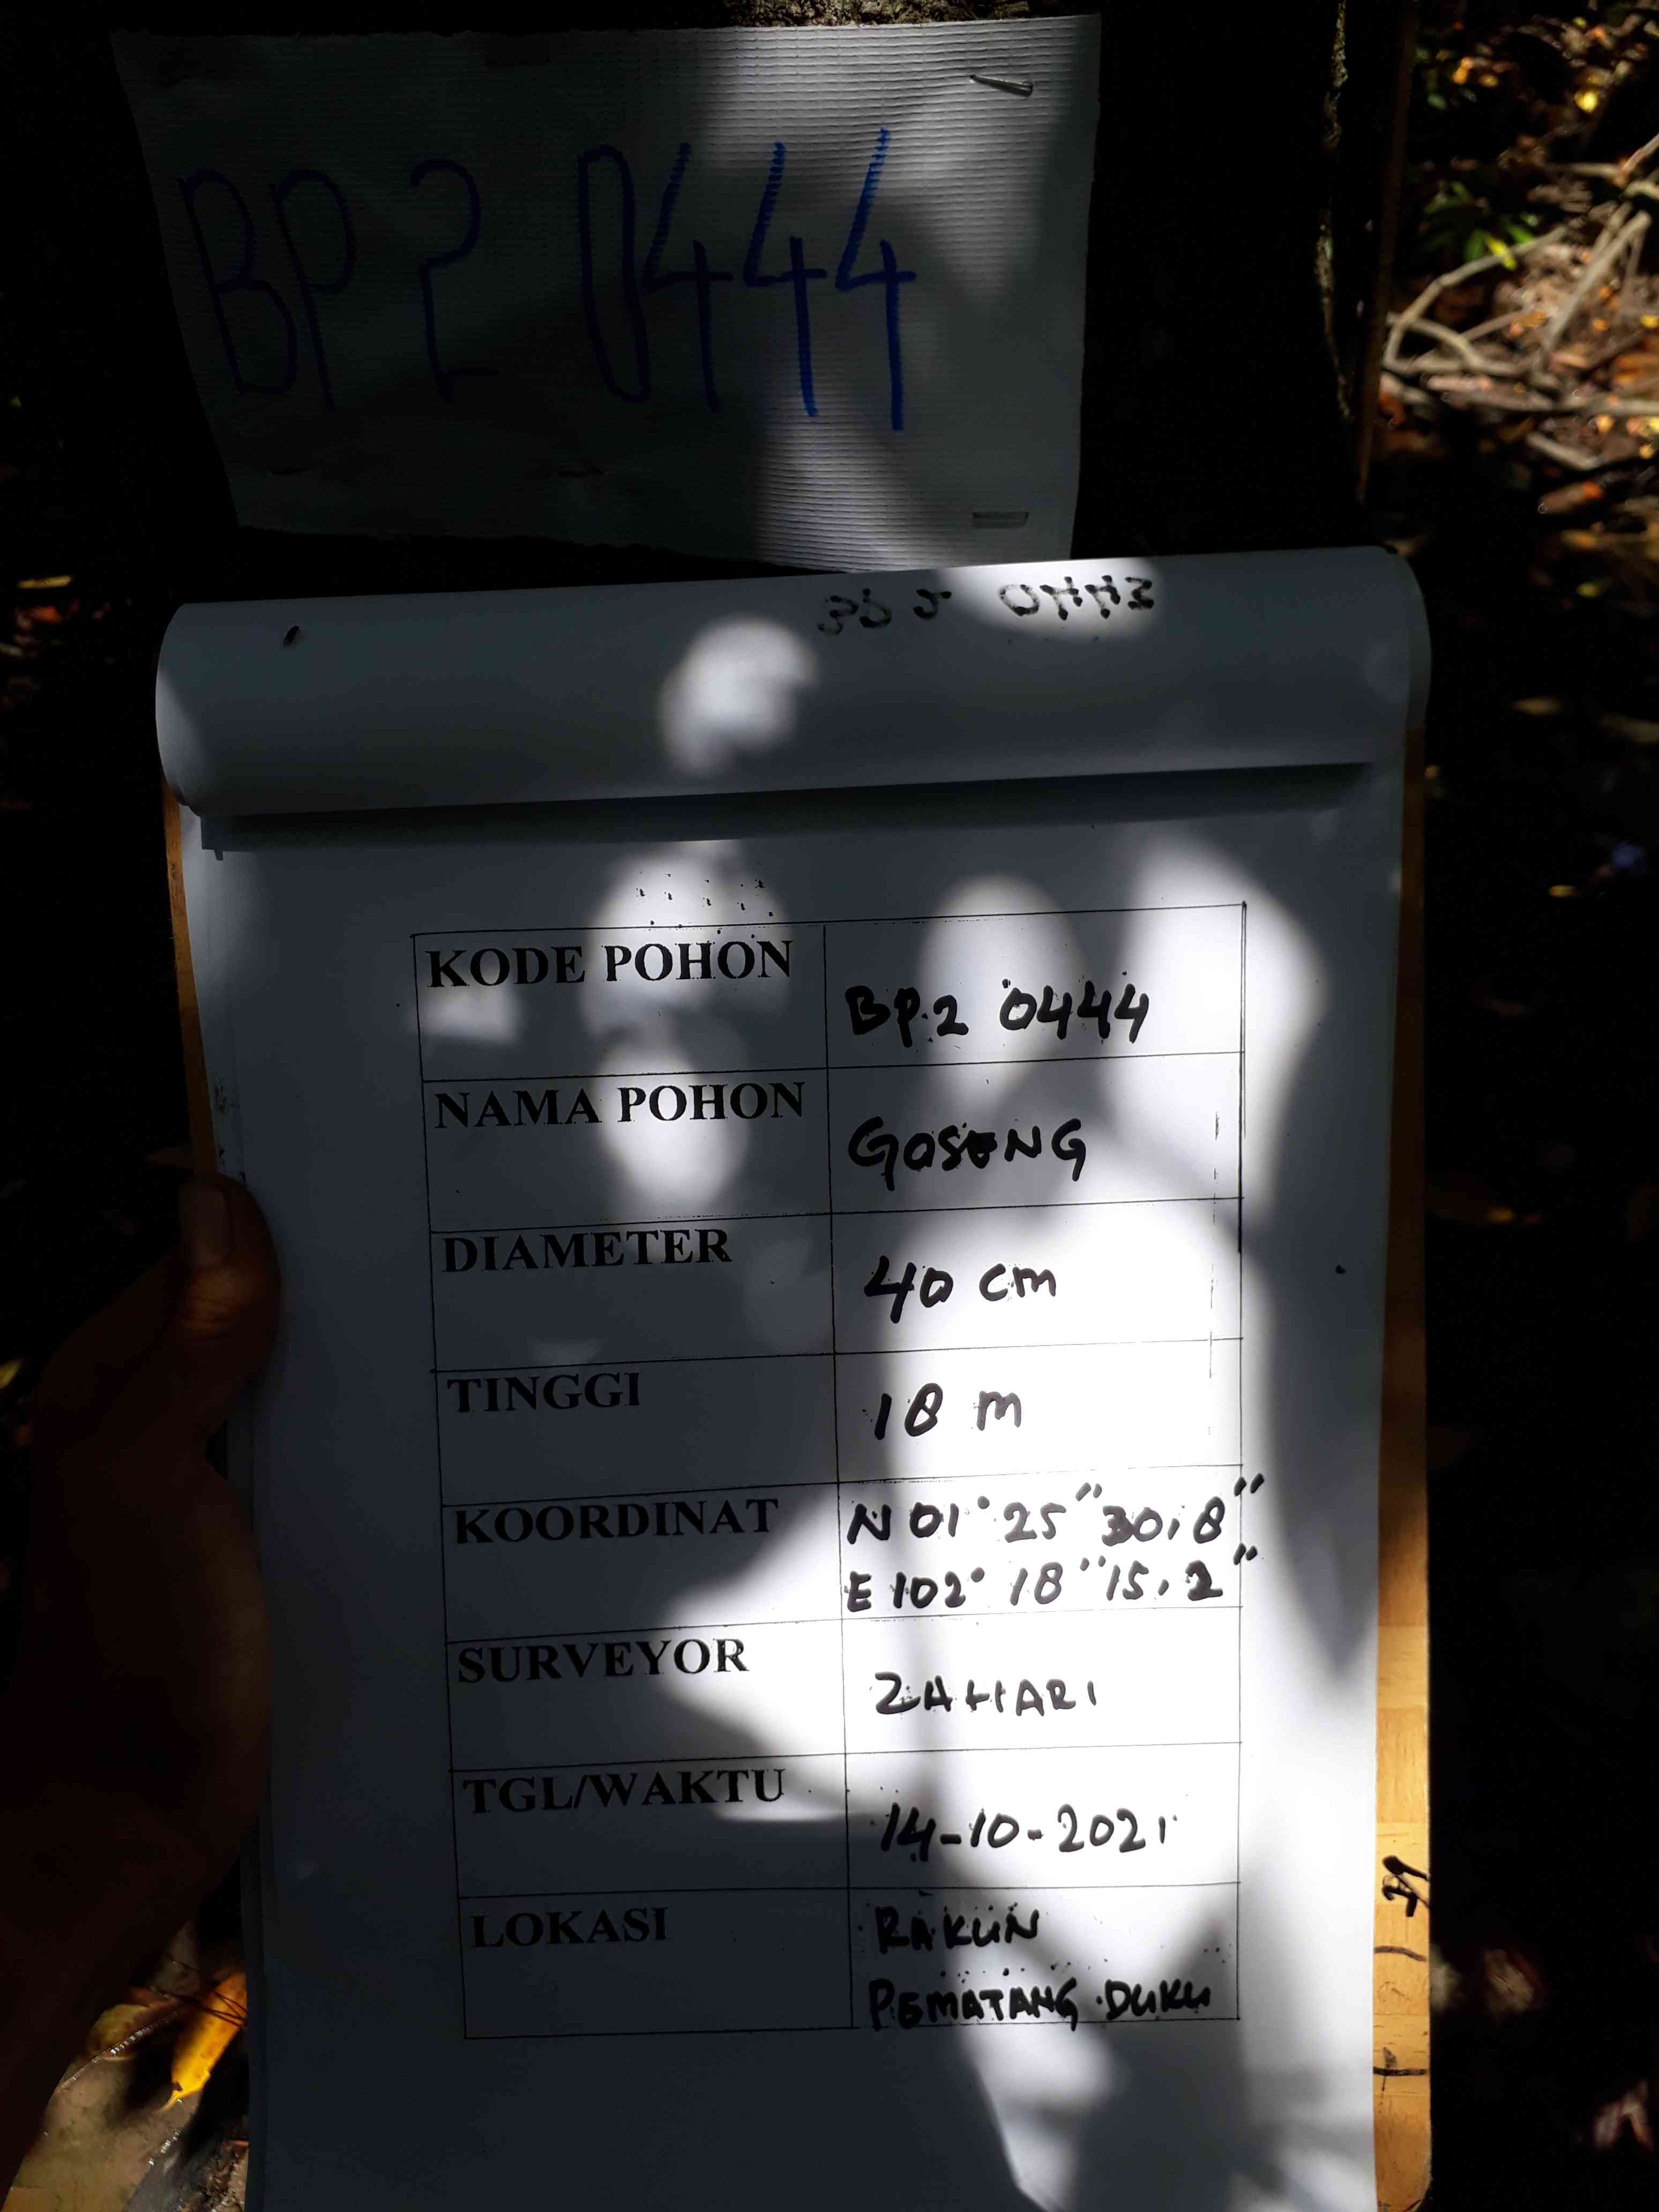 BP 2 0444
KODE POHON BP.2 0444
NAMA POHON GOSENG
DIAMETER 40 cm
TINGGI 18 m
KOORDINAT N 01° 25" 30,8"
E 102° 18" 15,2"
SURVEYOR ZAHARI
TGL/WAKTU 14-10-2021
LOKASI RAKUN
PEMATANG DUKU